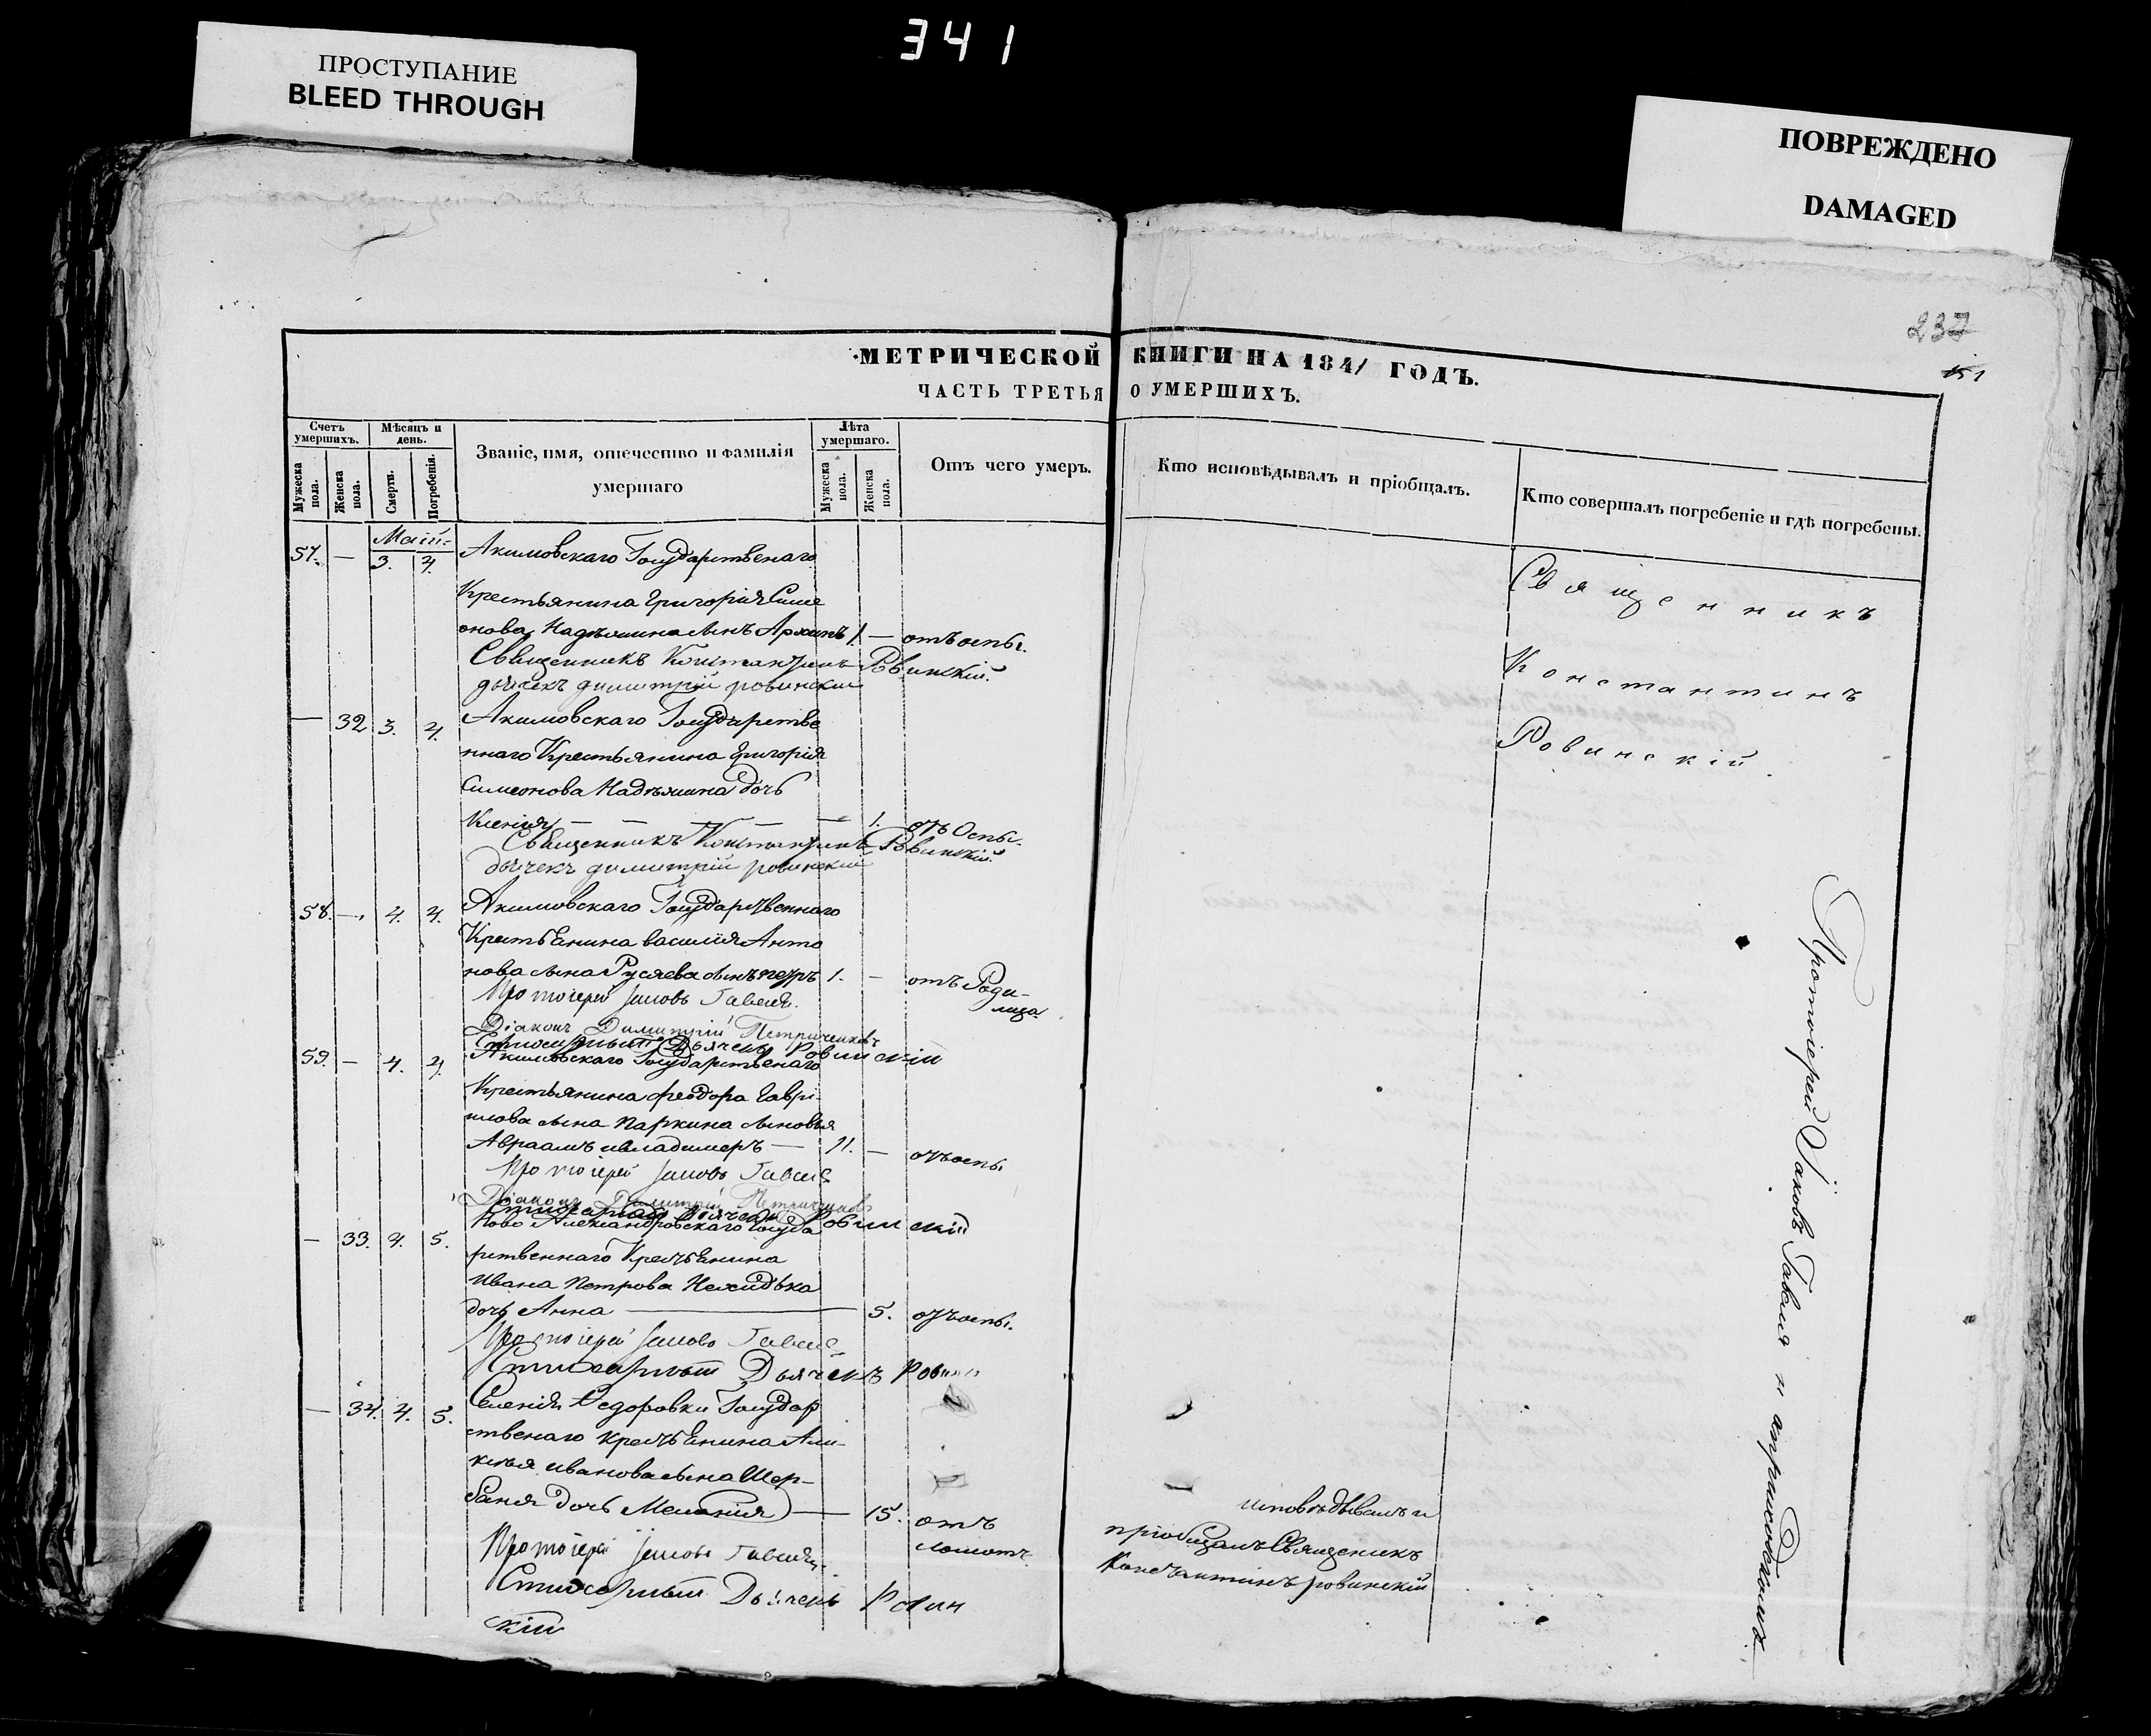 341
ПРОСТУПАНИЕ
BLEED THROUGH
ПОВРЕЖДЕНО
DAMAGED
237
151
МЕТРИЧЕСКОЙ КНИГИ НА 1841 ГОДЪ.
ЧАСТЬ ТРЕТЬЯ О УМЕРШИХЪ.
Счетъ умершихъ.
Мужеска пола.
Женска пола.
Мѣсяцъ и день.
Смерти.
Погребенія.
Званіе, имя, отечество и фамилія умершаго
Лѣта умершаго.
Мужеска пола.
Женска пола.
Отъ чего умеръ.
Кто исповѣдывалъ и пріобщалъ.
Кто совершалъ погребеніе и гдѣ погребены.
Май
57. — 3. 4. Акимовскаго Государственаго
Крестьянина Григорія Симе
онова Надѣмина сынъ Архипъ 1. — отъ оспы.
Священникъ Константинъ Ровинскій.
дьячекъ димитрій ровинскій
— 32 3. 4. Акимовскаго Государстве
ннаго Крестьянина Григорія
Симеонова Надѣмина дочь
Ксенія — — — — 1. отъ Оспы.
Священникъ Константинъ Ровинскій.
дьячекъ димитрій ровинскій
58. — 4. 4. Акимовскаго Государственнаго
Крестьенина василія Анто
нова сына Русяева сынъ петръ 1. — отъ Роди-
мца
Протоіерей Іаковъ Гавеля.
Діаконъ Димитрій Петриченковъ
Стихарный Дьячекъ Ровинскій
59. — 4. 4. Акимовскаго Государственаго
Крестьянина феодора Гаврі-
илова сына Паркина сыновья
Авраамъ и владимеръ — 11. — отъ оспы
Протоіерей Іаковъ Гавеля
Діаконъ Димитрій Петриченковъ
Стихарный Дьячекъ Ровинскій
— 33. 4. 5. Ново Александровскаго Госуда
рственнаго Крестьенина
Ивана Петрова
дочь Анна — 5. отъ оспы.
Протоіерей Іаковъ Гавеля
Стихарный Дьячекъ
— 34. 4. 5. Селенія Федоровки Государ
ственаго крестьенина
иванова сына Щер-
баня дочь Меланія — 15. отъ
исповѣдывалъ и
пріобщалъ Священикъ
Константинъ ровинскій
Протоіерей Іаковъ Гавеля.
Стихарный Дьячекъ Ровин
скій
Священникъ
Константинъ
Ровинскій.
Протоіерей Іаковъ Гавеля и